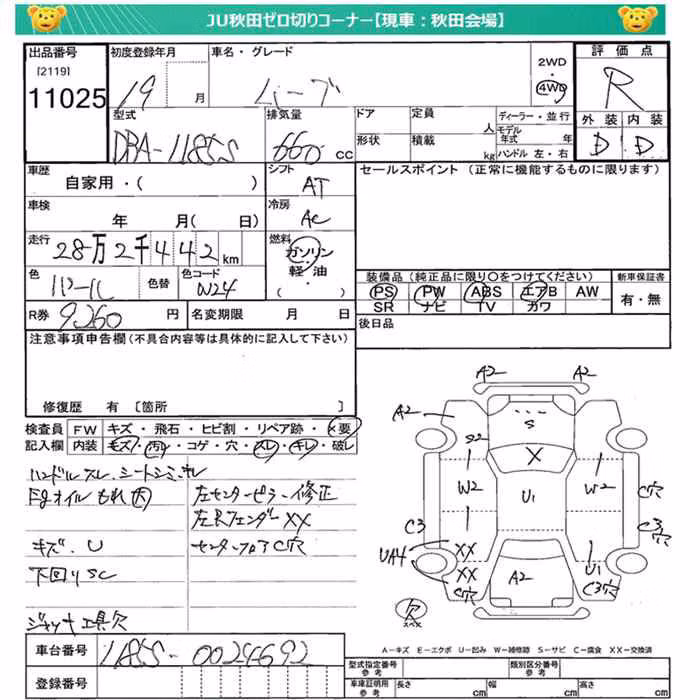 JU秋田ゼロ切りコーナー【現車：秋田会場】
出品番号 初度登録年月 車名・グレード 2WD・4WD 評価点
[2119]
11025 19 月 ムーブ R
型式 排気量 ドア 定員 人 ディーラー・並行 外装 内装
DBA-L185S 660 cc 形状 積載 kg モデル年式 年 D D
ハンドル 左・右
車歴 シフト セールスポイント（正常に機能するものに限ります）
自家用・（ ） AT
車検 冷房
年 月（ 日） AC
走行 燃料
28万2千442km ガソリン・軽・油
色 色替 色コード （ ）
パール W24
装備品（純正品に限り○をつけてください） 新車保証書
PS PW ABS エアB AW 有・無
SR ナビ TV カワ
R券 9260 円 名変期限 月 日 後日品
注意事項申告欄（不具合内容等は具体的に記入して下さい）
修復歴 有 [箇所 ]
検査員記入欄 FW キズ・飛石・ヒビ割・リペア跡・×要
内装 キズ・汚れ・コゲ・穴・スレ・キレ・破レ
ハンドルスレ、シートシミ、ホレ
Egオイルもれ大 左センターピラー修正
左Rフェンダー XX
キズ、U センターフロアC穴
下回りSC
ジャッキ工具欠
A2 A2
A2 S
S2 X
W2 U1 W2 C穴
C3 C3穴
UA4 XX
XX A2 U1
C穴 C3穴
欠
スペア
A－キズ E－エクボ U－凹み W－補修跡 S－サビ C－腐食 XX－交換済
車台番号 L185S-0024692
登録番号
型式指定番号 参考 類別区分番号 参考
車庫証明用 参考 長さ cm 幅 cm 高さ cm